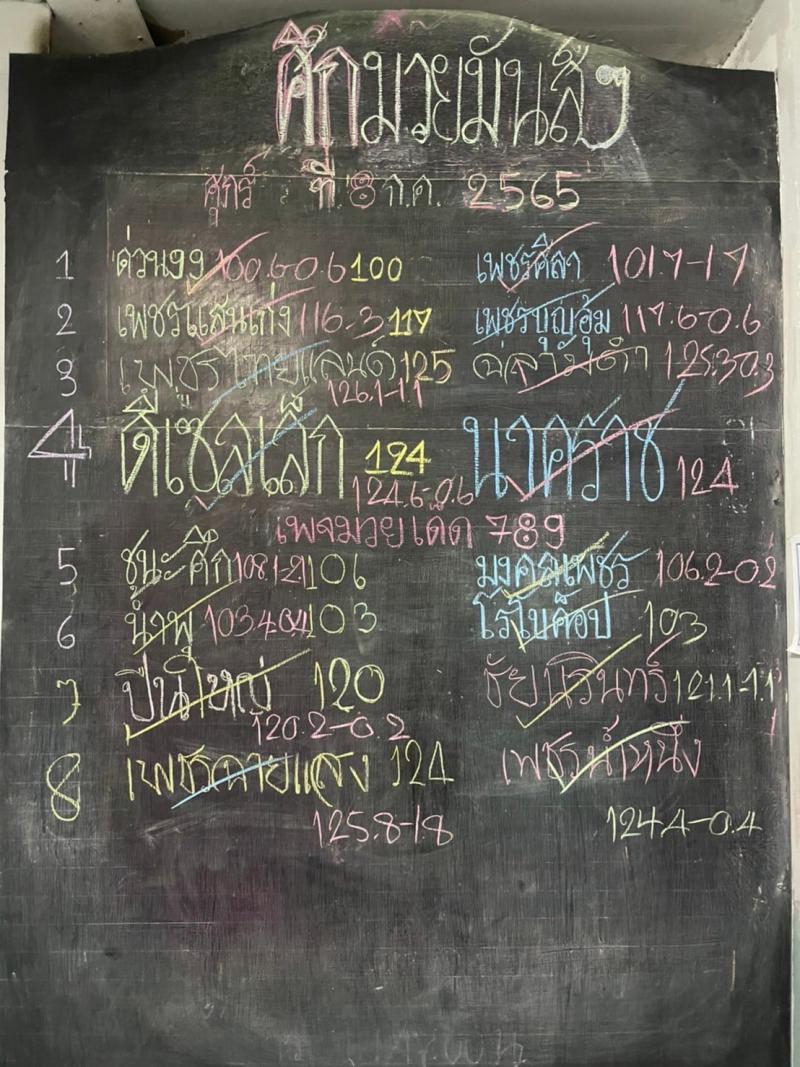 ศึกมวยมันส์ๆ
ศุกร์ ที่ 8 ก.ค. 2565
1 ด่วน99 100.6-0.6 100 เพชรศิลา 101.7-1.7
2 เพชรแสนเก่ง 116.3 117 เพชรบุญอุ้ม 117.6-0.6
3 เพชรไทยแลนด์ 125 ฉลามดำ 125.3-0.3
126.1-1.1
4 ดีเซลเล็ก 124 นาคราช 124
124.6-0.6
เพจมวยเด็ด 789
5 ชนะศึก 108.1-2.1 106 มงคลเพชร 106.2-0.2
6 น้ำพุ 103.4-0.4 103 โรโบค็อป 103
7 ปืนใหญ่ 120 ชัยนรินทร์ 121.1-1.1
120.2-0.2
8 เพชรฉายแสง 124 เพชรน้ำหนึ่ง
125.8-1.8 124.4-0.4